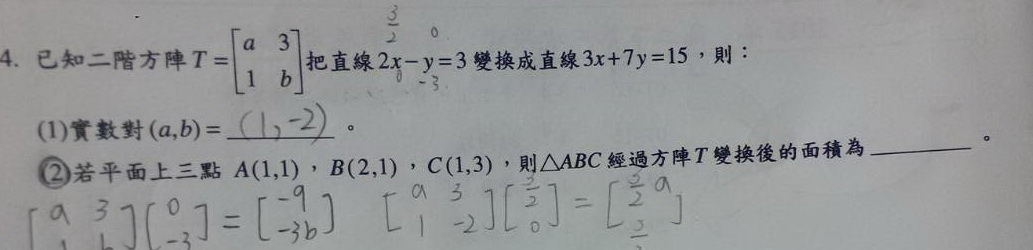 3/2 0
4. 已知二階方陣 T = [a 3; 1 b] 把直線 2x-y=3 變換成直線 3x+7y=15,則:
0 -3
(1)實數對(a,b)= (1,-2) 。
②若平面上三點 A(1,1),B(2,1),C(1,3),則△ABC 經過方陣 T 變換後的面積為 ________ 。
[a 3; 1 b][0; -3] = [-9; -3b] [a 3; 1 -2][3/2; 0] = [3/2 a; 3/2]